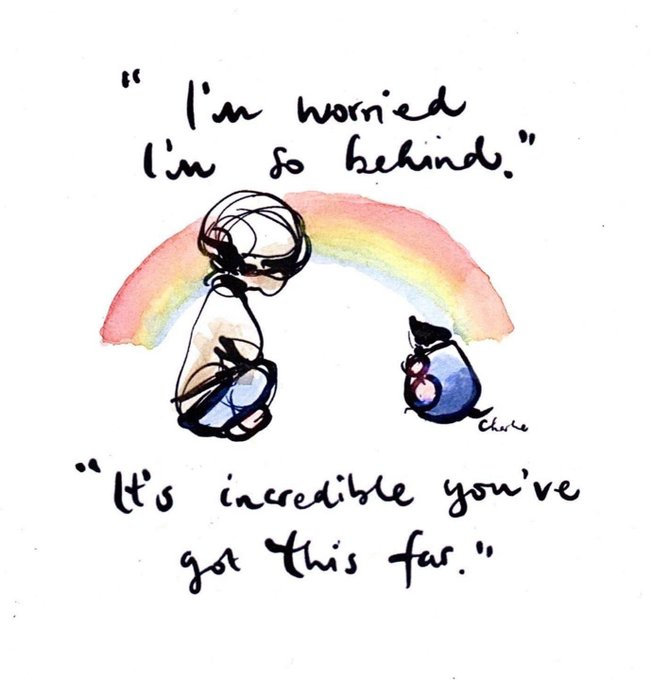 "I'm worried
I'm so behind."
Charlie
"It's incredible you've
got this far."